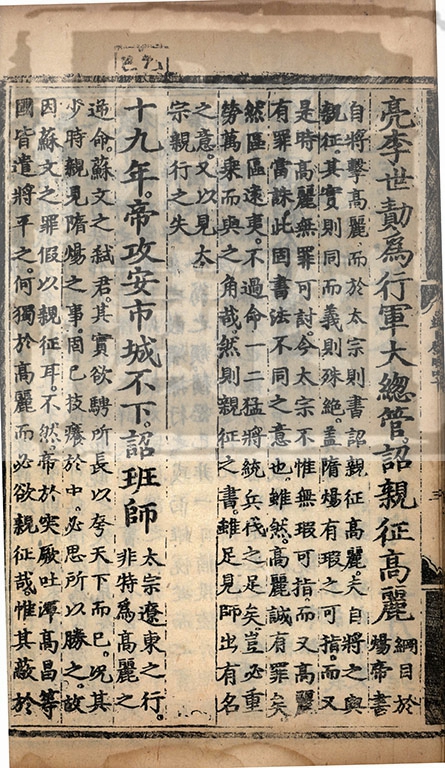 亮李世勣為行軍大總管。詔親征高麗
綱目於
煬帝書
自將擊高麗而於太宗則書詔親征高麗夫自將之與
親征其實則同而義則殊絶。盖隋煬有瑕之可指。而又
是時高麗無罪可討。今太宗不惟無瑕可指而又高麗
有罪當誅。此固書法不同之意也。雖然。高麗誠有罪矣
然區區遠夷。不過命一二猛將統兵伐之足矣。豈必重
勞萬乗而與之角哉。然則親征之書。雖足見師出有名
之意。又以見太
宗親行之失
十九年。帝攻安市城不下。詔班師
太宗遼東之行。
非特為高麗之
逆命。蘇文之弑君。其實欲騁所長以夸天下而已。况其
少時親見隋煬之事。固已技癢於中。必思所以勝之。故
因蘇文之罪假以親征耳。不然。帝於突厥吐渾高昌等
國皆遣將平之。何獨於高麗而必欲親征哉。惟其蔽於